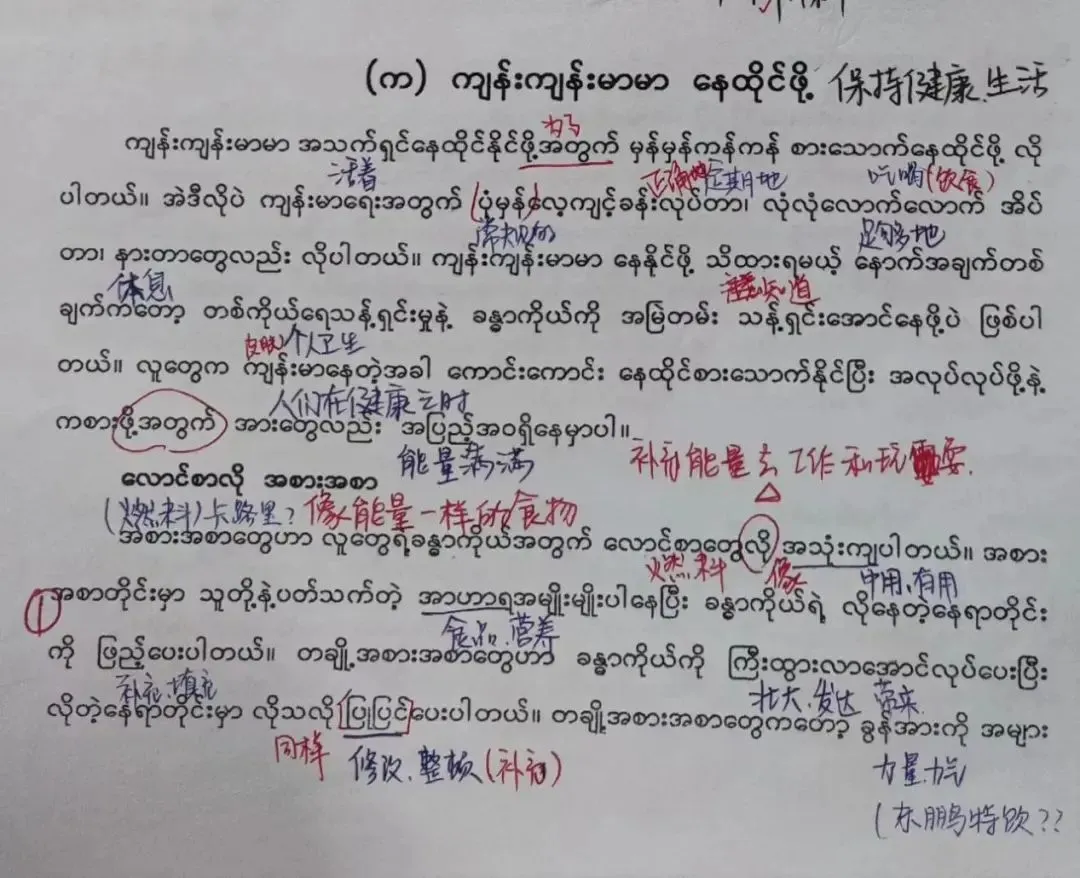 (က) ကျန်းကျန်းမာမာ နေထိုင်ဖို့ 保持健康.生活
为了
ကျန်းကျန်းမာမာ အသက်ရှင်နေထိုင်နိုင်ဖို့အတွက် မှန်မှန်ကန်ကန် စားသောက်နေထိုင်ဖို့ လို
活着 正确地 定期地 吃喝(饮食)
ပါတယ်။ အဲဒီလိုပဲ ကျန်းမာရေးအတွက် ပုံမှန်လေ့ကျင့်ခန်းလုပ်တာ၊ လုံလုံလောက်လောက် အိပ်
常规的 足够多地
တာ၊ နားတာတွေလည်း လိုပါတယ်။ ကျန်းကျန်းမာမာ နေနိုင်ဖို့ သိထားရမယ့် နောက်အချက်တစ်
休息 知道
ချက်ကတော့ တစ်ကိုယ်ရေသန့်ရှင်းမှုနဲ့ ခန္ဓာကိုယ်ကို အမြဲတမ်း သန့်ရှင်းအောင်နေဖို့ပဲ ဖြစ်ပါ
个人卫生
တယ်။ လူတွေက ကျန်းမာနေတဲ့အခါ ကောင်းကောင်း နေထိုင်စားသောက်နိုင်ပြီး အလုပ်လုပ်ဖို့နဲ့
人们在健康之时
ကစားဖို့အတွက် အားတွေလည်း အပြည့်အဝရှိနေမှာပါ။
能量满满 补充能量去工作和玩耍.
လောင်စာလို အစားအစာ
(燃料)卡路里? 像能量一样的食物
အစားအစာတွေဟာ လူတွေရဲ့ခန္ဓာကိုယ်အတွက် လောင်စာတွေလို အသုံးကျပါတယ်။ အစား
燃料 像 中用.有用
① အစာတိုင်းမှာ သူတို့နဲ့ပတ်သက်တဲ့ အာဟာရအမျိုးမျိုးပါနေပြီး ခန္ဓာကိုယ်ရဲ့ လိုနေတဲ့နေရာတိုင်း
食品.营养
ကို ဖြည့်ပေးပါတယ်။ တချို့အစားအစာတွေဟာ ခန္ဓာကိုယ်ကို ကြီးထွားလာအောင်လုပ်ပေးပြီး
补充.填充 壮大.发达 带来
လိုတဲ့နေရာတိုင်းမှာ လိုသလို ပြုပြင်ပေးပါတယ်။ တချို့အစားအစာတွေကတော့ ခွန်အားကို အများ
同样 修改.整顿(补充) 力量.力气
(东鹏特饮??